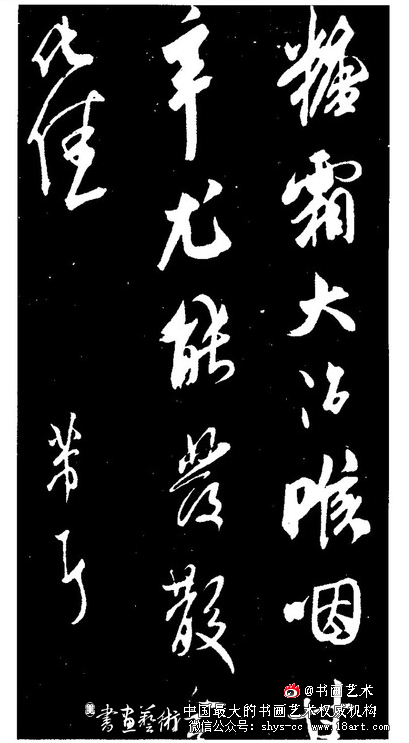 糖霜大治喉咽甘
辛尤能發散
化佳
芾
書画藝術
@书画艺术
中国最大的书画艺术权威机构
微信公众号: shys-cc www.18art.com